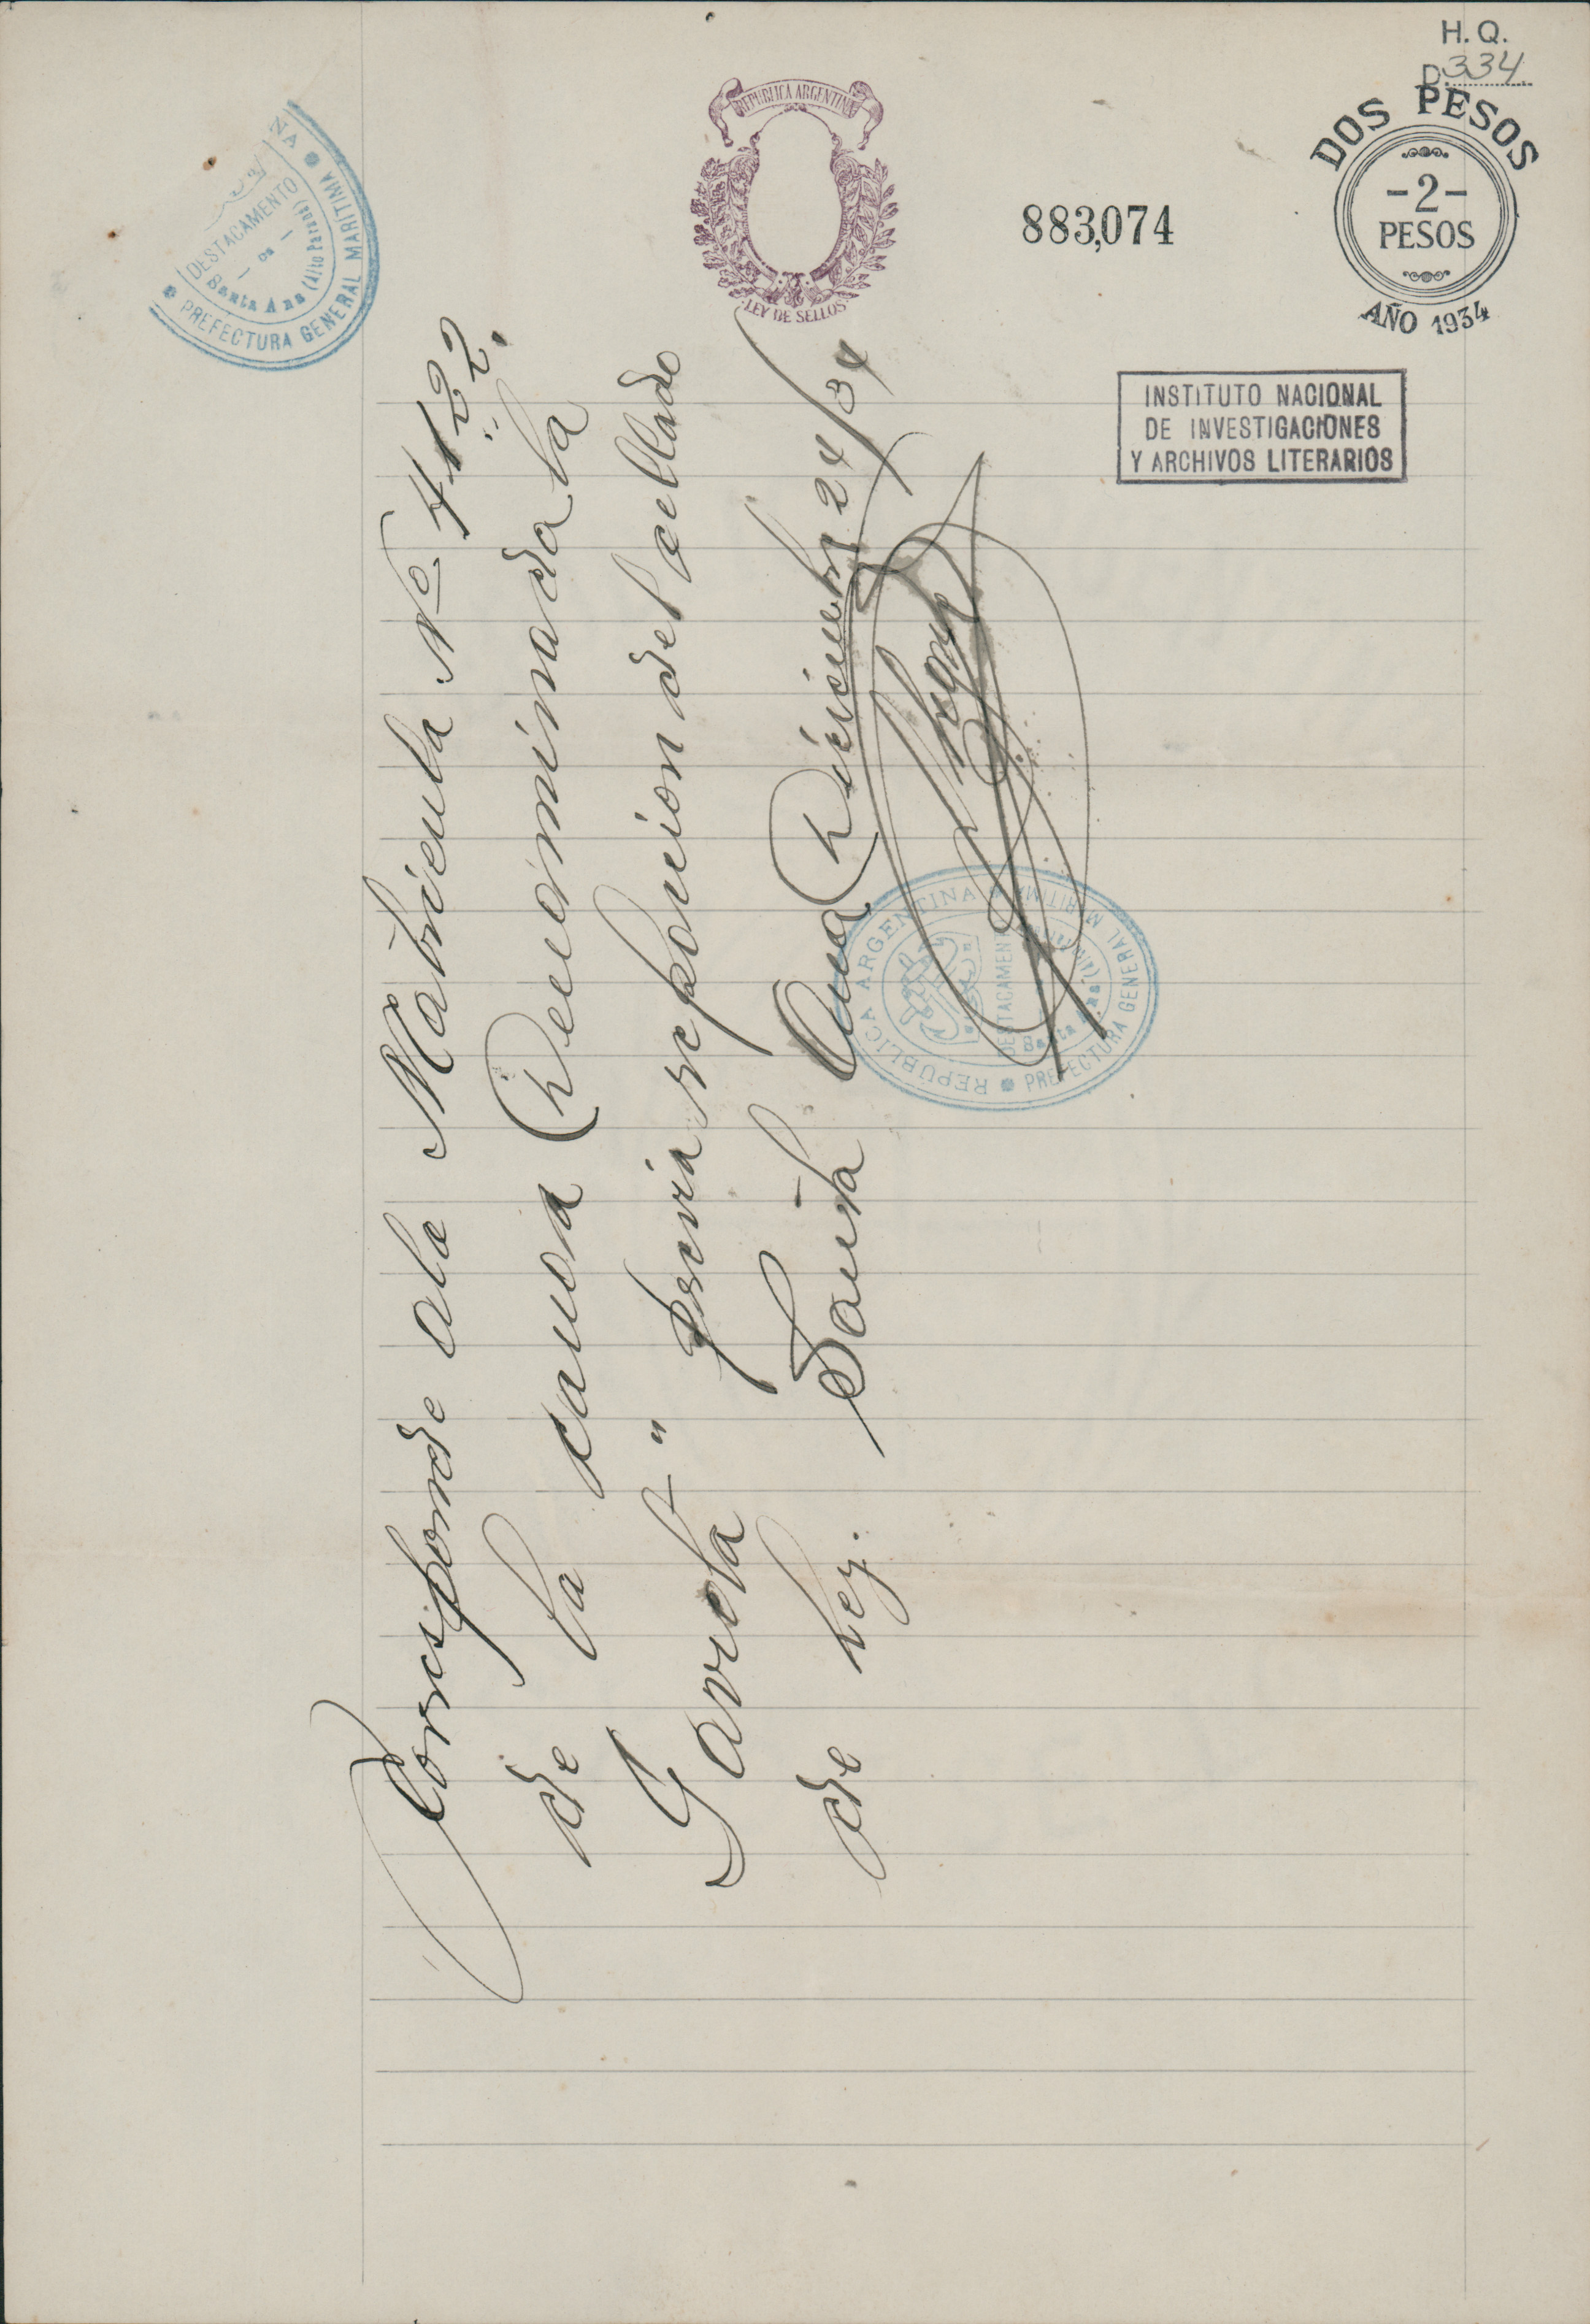 H. Q.
D. 334
REPUBLICA ARGENTINA
LEY DE SELLOS
883,074
DOS PESOS
-2-
PESOS
AÑO 1934
INSTITUTO NACIONAL
DE INVESTIGACIONES
Y ARCHIVOS LITERARIOS
NA
DESTACAMENTO
Santa Ana (Alto Paraná)
PREFECTURA GENERAL MARITIMA
Corresponde ala Matricula Nº 4122.
de la canoa Denóminada la
Gaviota" previa reposicion del sellado
de ley. Santa Ana Diciembre 24/34
REPUBLICA ARGENTINA
DESTACAMENTO
Santa Ana (Alto
PREFECTURA GENERAL MARITIMA